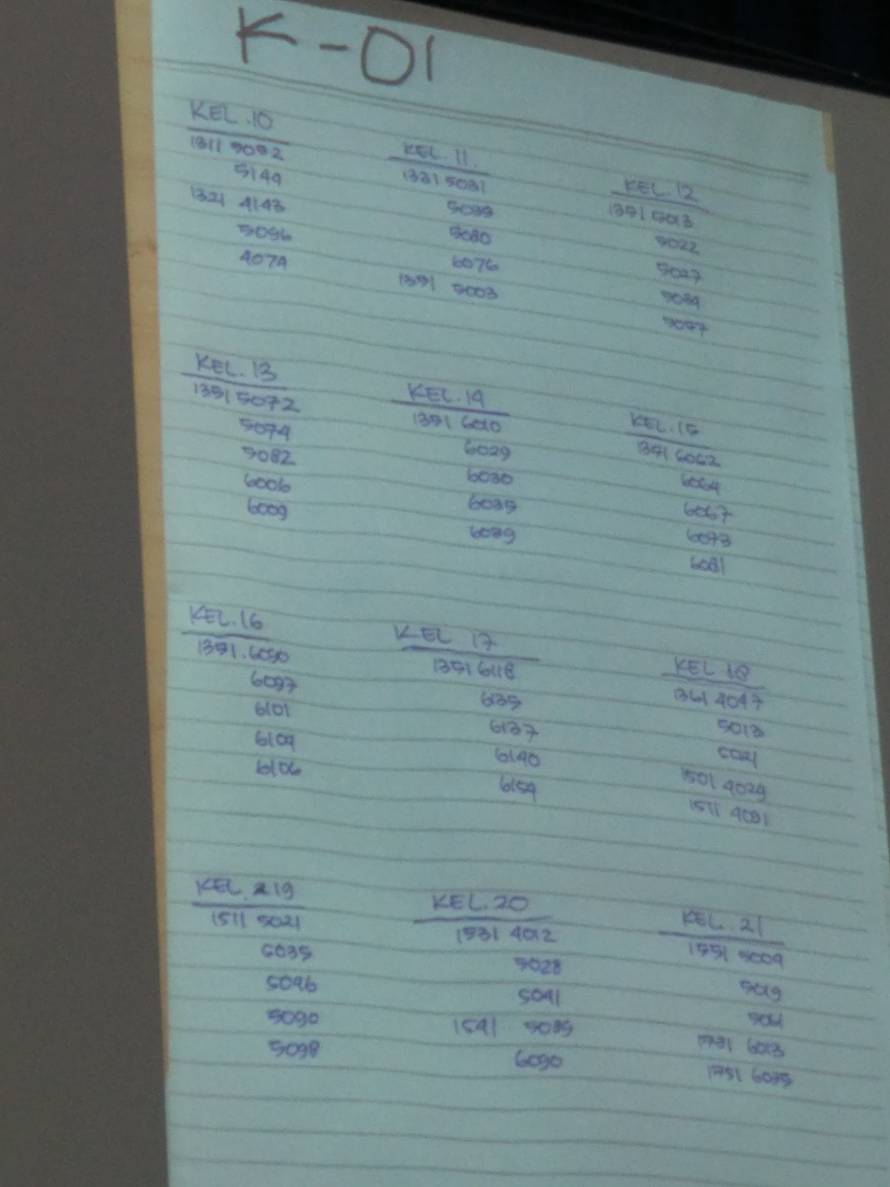 K-01
KEL.10
1311 5092
5144
1321 4143
5096
4074
KEL.11.
1331 5031
5039
5080
6076
1351 5003
KEL.12
1351 5013
5022
5027
5034
5047
KEL.13
1351 5072
5074
5082
6006
6009
KEL.14
1351 6010
6029
6030
6035
6039
KEL.15
1351 6062
6064
6067
6073
6081
KEL.16
1351.6090
6097
6101
6104
6106
KEL 17
1351 6118
6135
6137
6140
6154
KEL 18
1361 4047
5013
5021
1501 4029
1511 4091
KEL. 19
1511 5021
5035
5046
5090
5098
KEL.20
1531 4012
5028
5041
1541 5035
6090
KEL. 21
1551 5009
5019